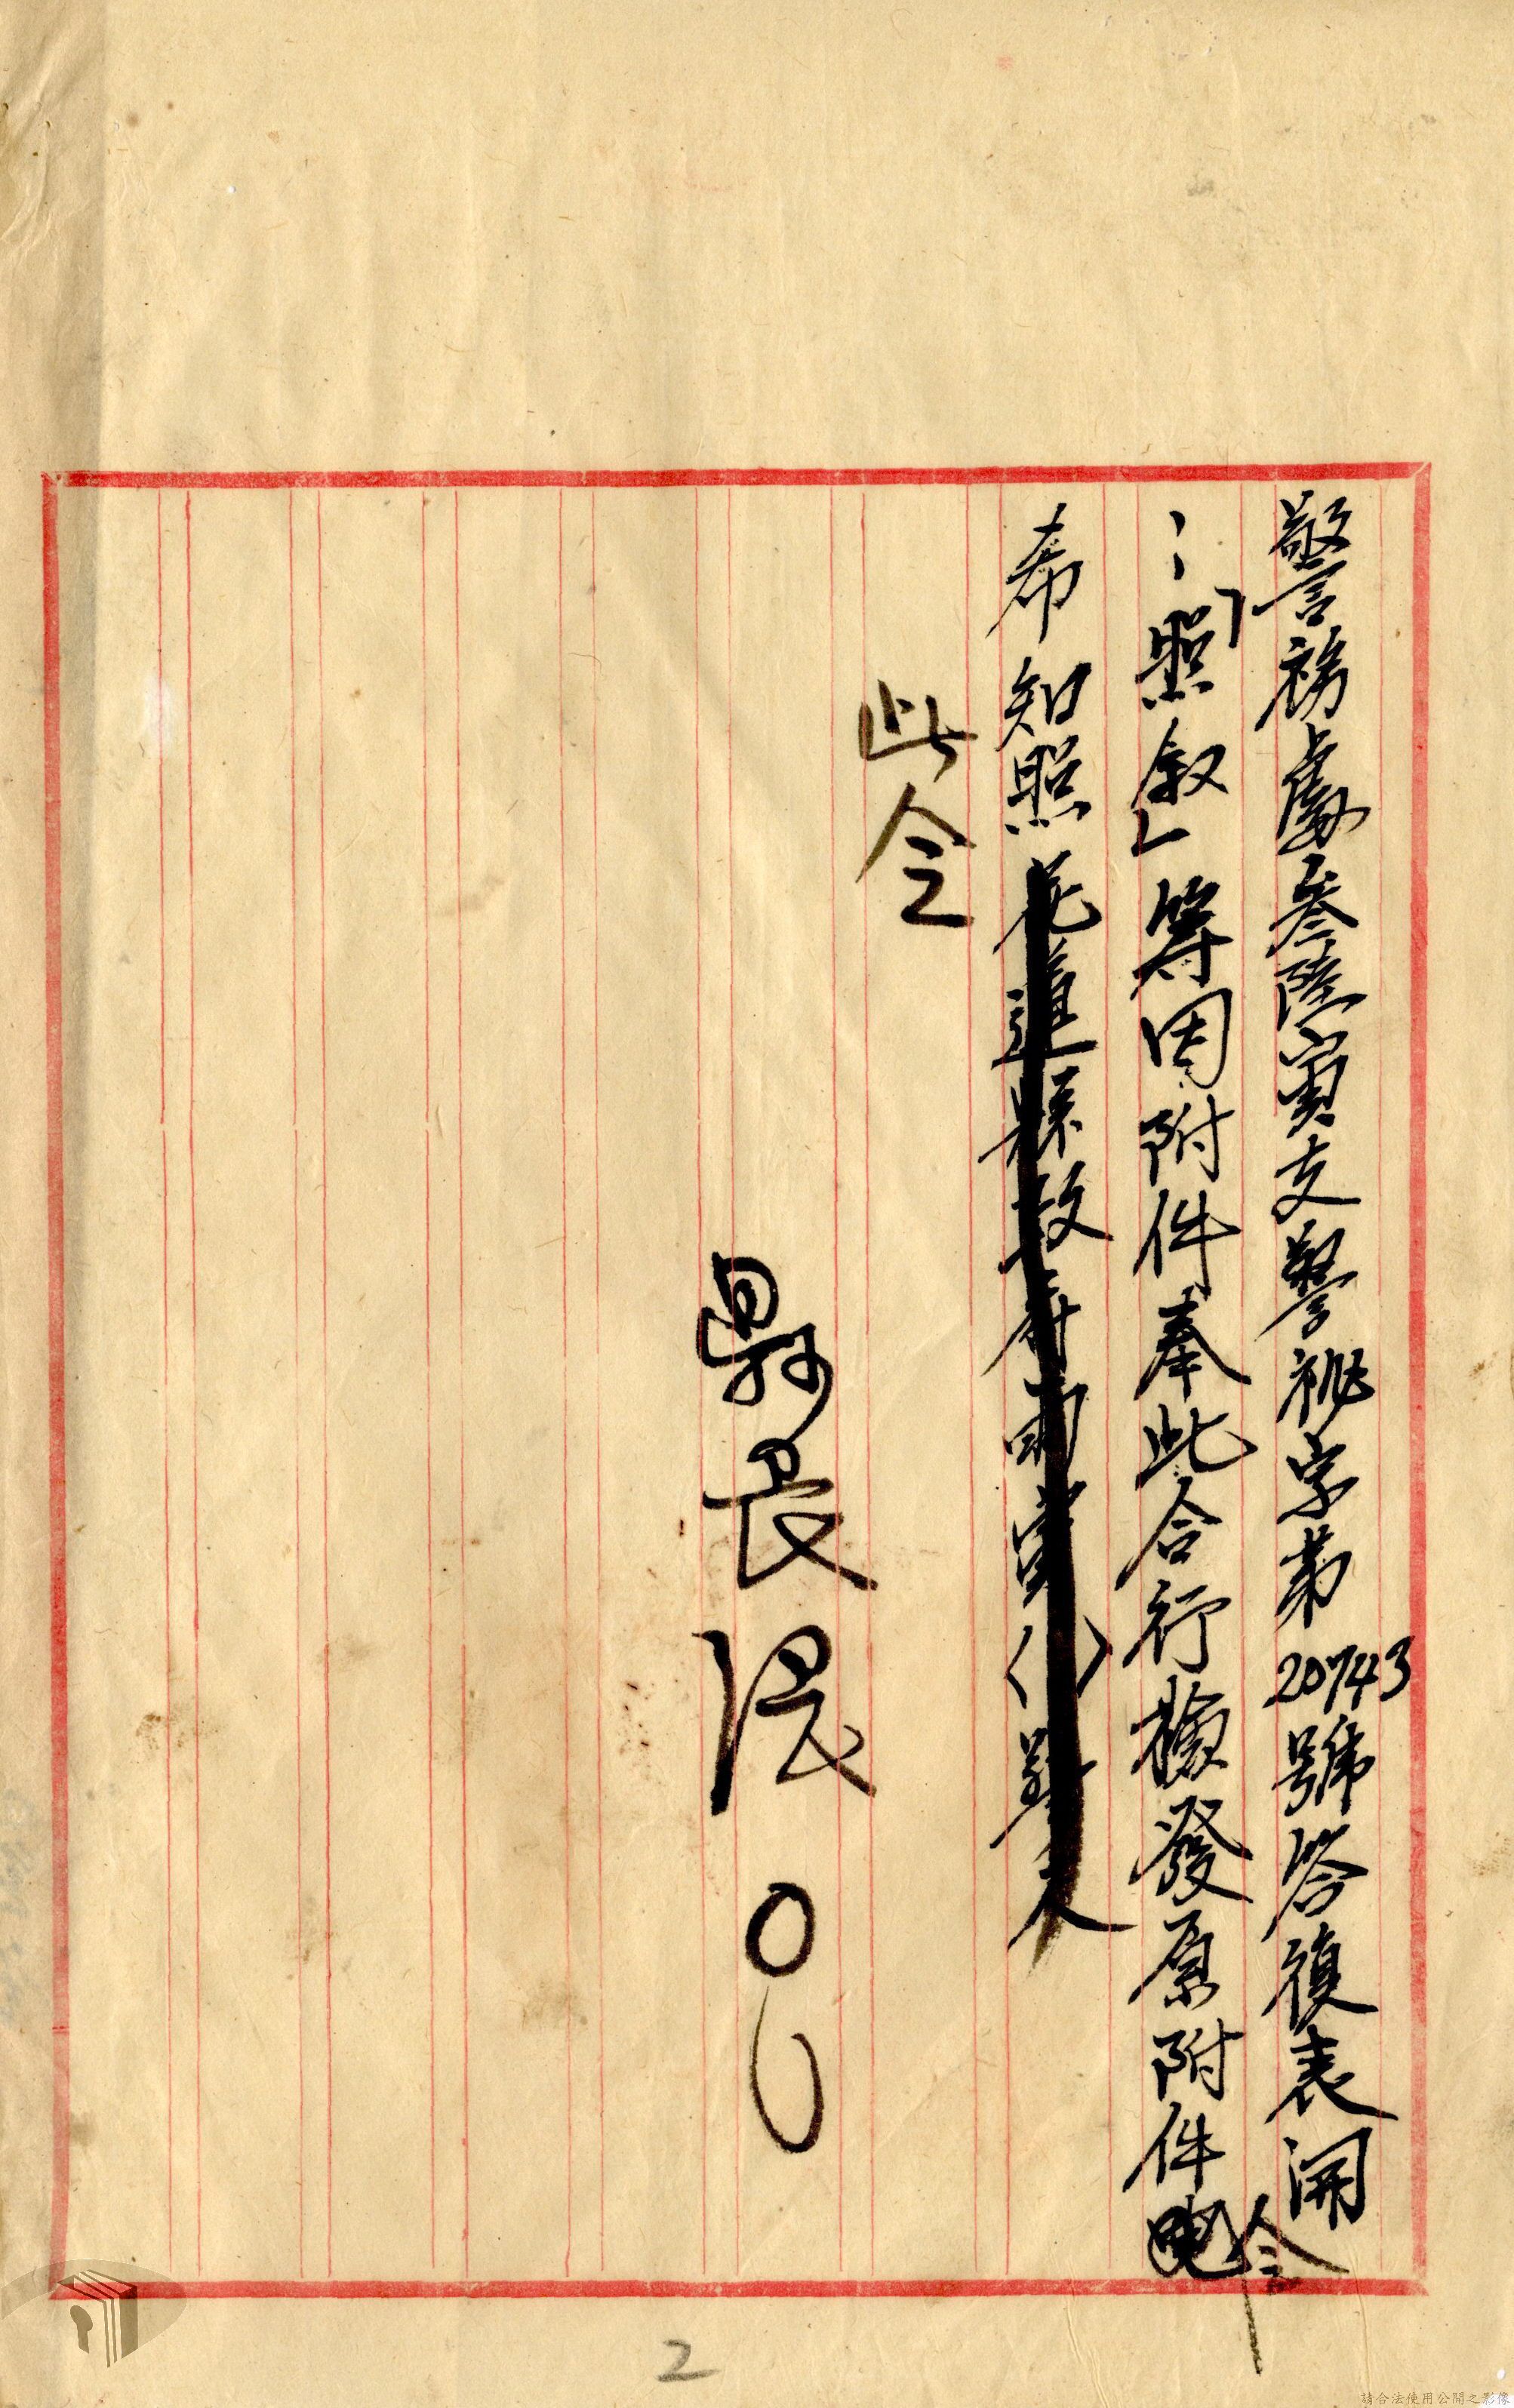 警務處叁陸寅支警祕字第20743號答復表開
：「照叙」等因附件奉此合行檢發原附件令
希知照花蓮縣政府丙寅()警
此令
縣長張〇〇
2
請合法使用公開之影像